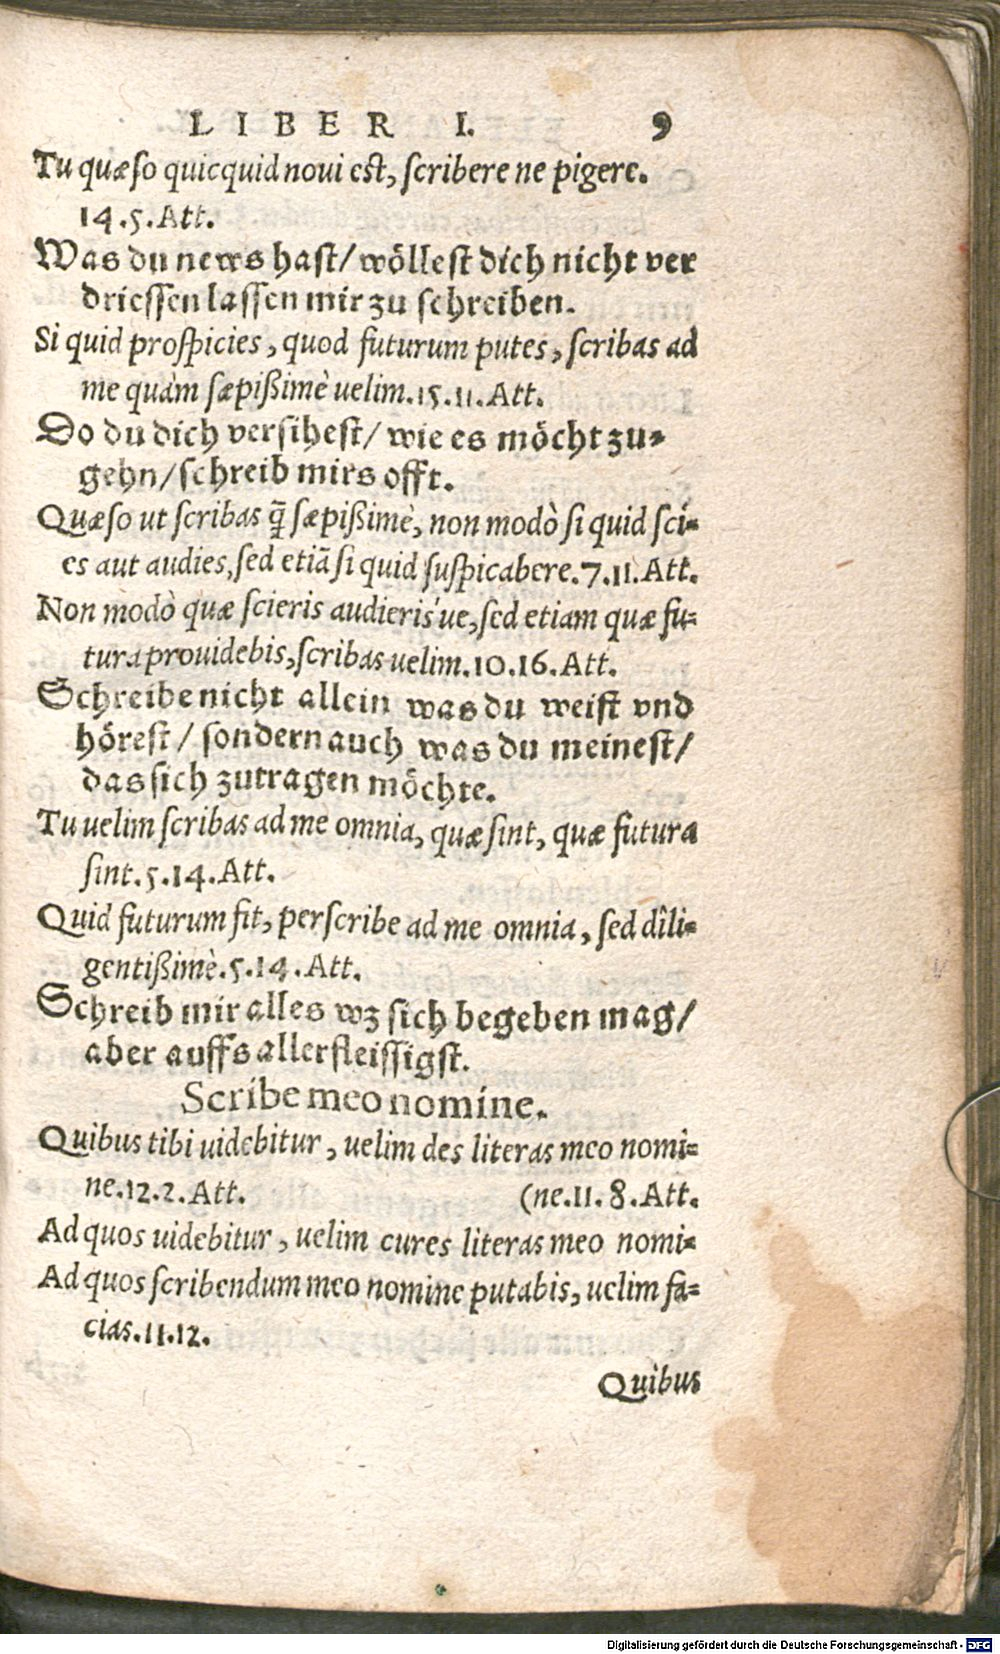 LIBER I. 9
Tu quæso quicquid novi est, scribere ne pigere.
14.5.Att.
Was du news hast/ wöllest dich nicht ver
driessen lassen mir zu schreiben.
Si quid prospicies, quod futurum putes, scribas ad
me quàm sæpißimè uelim.15.11.Att.
Do du dich versihest/ wie es möcht zu-
gehn/schreib mirs offt.
Quæso ut scribas q̃ sæpißimè, non modò si quid sci-
es aut audies, sed etiã si quid suspicabere.7.11.Att.
Non modò quæ scieris audieris'ue, sed etiam quæ fu-
tura prouidebis, scribas uelim.10.16.Att.
Schreibe nicht allein was du weist vnd
hörest/ sondern auch was du meinest/
das sich zutragen möchte.
Tu uelim scribas ad me omnia, quæ sint, quæ futura
sint.5.14.Att.
Quid futurum sit, perscribe ad me omnia, sed dili-
gentißimè.5.14.Att.
Schreib mir alles wz sich begeben mag/
aber auffs allerfleissigst.
Scribe meo nomine.
Quibus tibi uidebitur, uelim des literas meo nomi-
ne.12.2.Att. (ne.11.8.Att.
Ad quos uidebitur, uelim cures literas meo nomi-
Ad quos scribendum meo nomine putabis, uelim fa-
cias.11.12.
Quibus
Digitalisierung gefördert durch die Deutsche Forschungsgemeinschaft - DFG